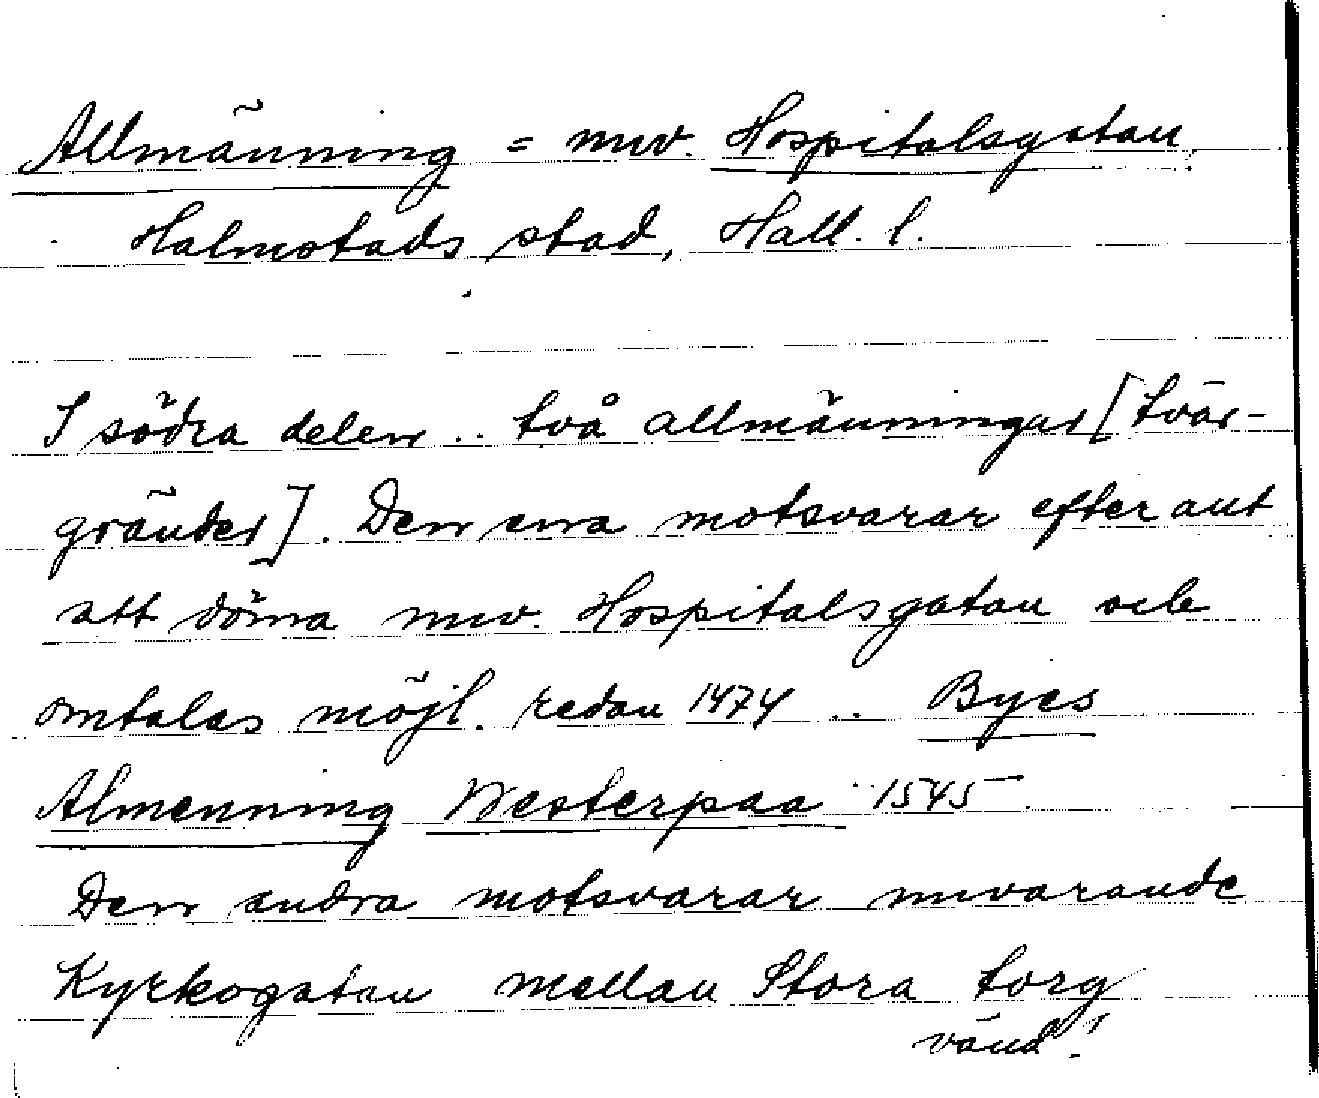 Allmänning = nuv. Hospitalsgatan,
Halmstads stad, Hall. l.
I södra delen .. två allmänningar [tvär-
gränder]. Den ena motsvarar efter allt
att döma nuv. Hospitalsgatan och
omtalas möjl. redan 1474 .. Byes
Almenning Westerpaa .. 1545
Den andra motsvarar nuvarande
Kyrkogatan mellan Stora torg
vänd!